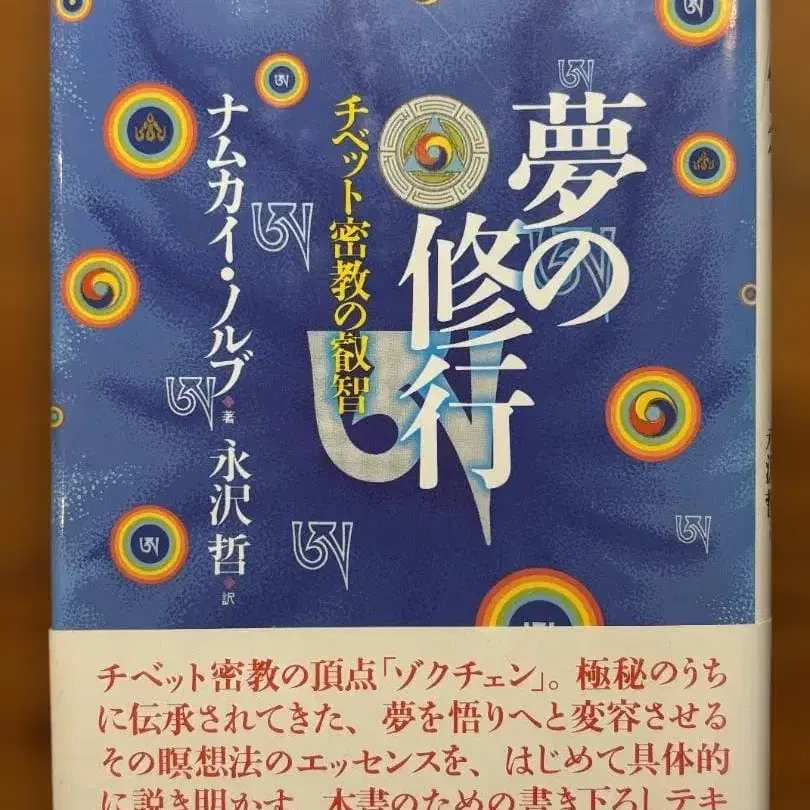 夢の
修行
チベット密教の叡智
ナムカイ・ノルブ 著
永沢 哲 訳
チベット密教の頂点「ゾクチェン」。極秘のうち
に伝承されてきた、夢を悟りへと変容させる
その瞑想法のエッセンスを、はじめて具体的
に説き明かす。本書のための書き下ろしテキ